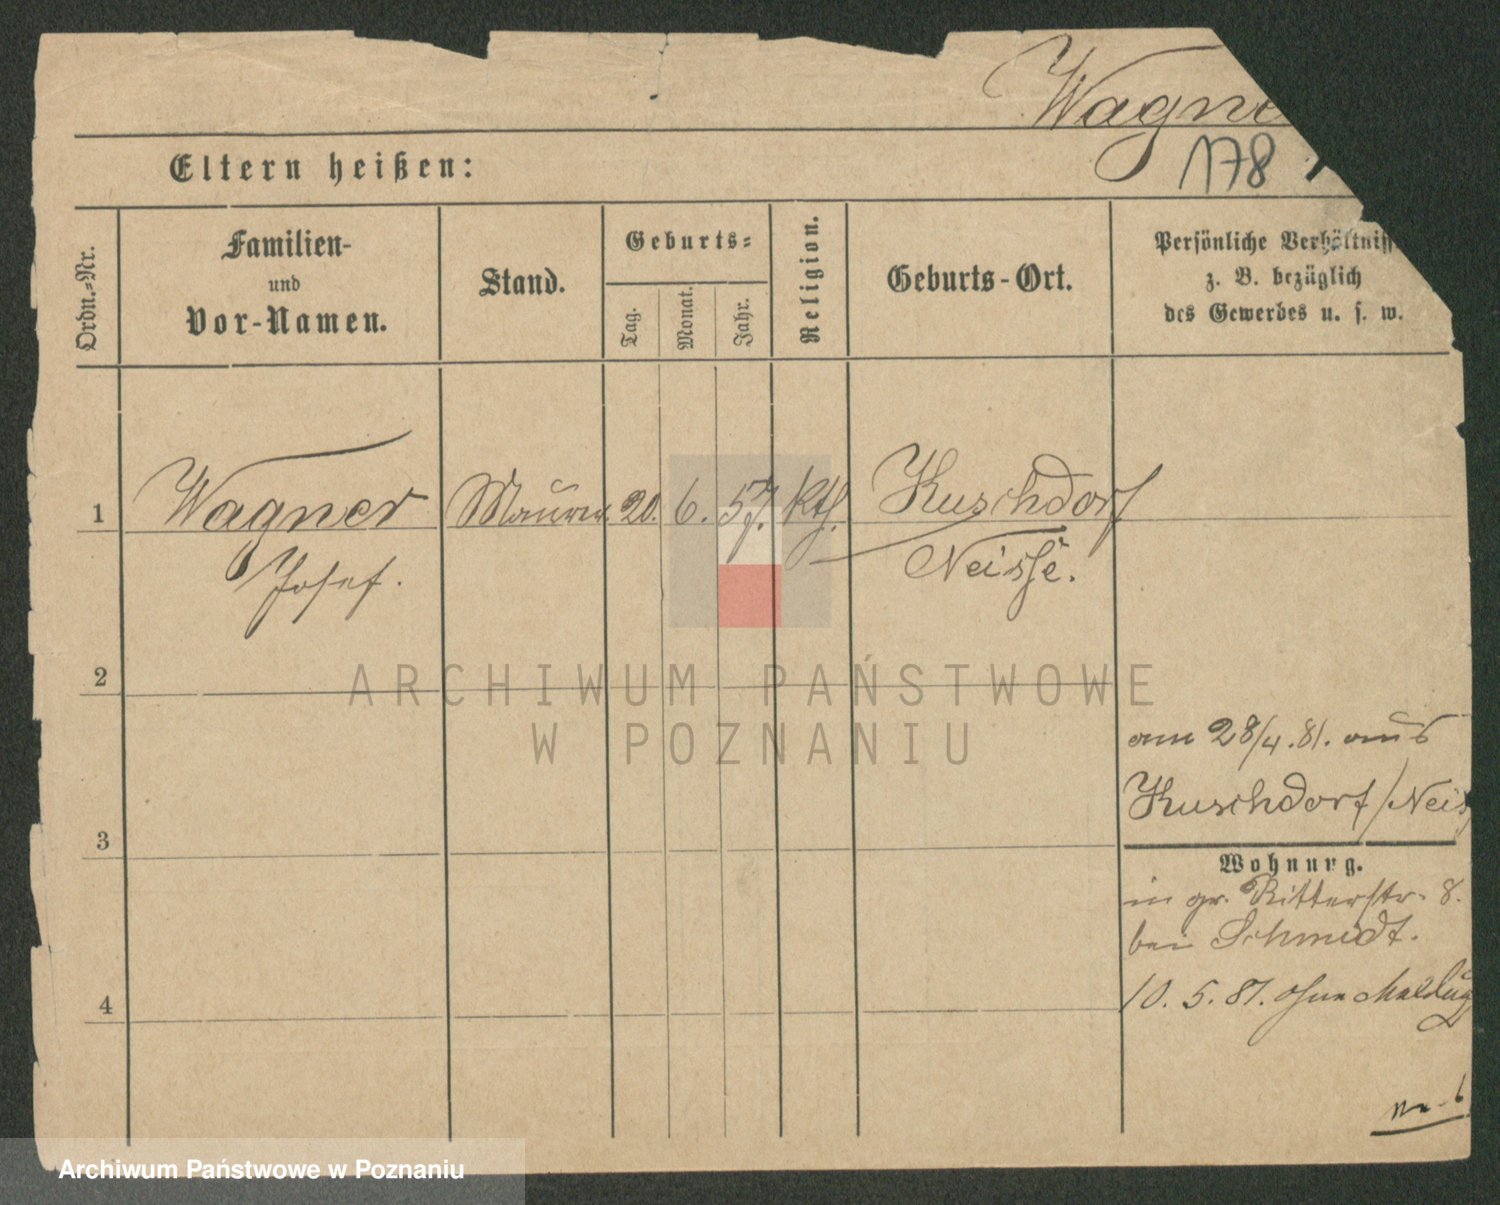 Wagne
178
Eltern heißen:
Ordn.-Nr.
Familien-
und
Vor-Namen.
Stand.
Geburts-
Tag.
Monat.
Jahr.
Religion.
Geburts-Ort.
Persönliche Verhältniss
z. B. bezüglich
des Gewerbes u. s. w.
1 Wagner Maurer. 20. 6. 57. kth. Kuschdorf
Josef. Neisse.
2
ARCHIWUM PAŃSTWOWE
W POZNANIU
am 28/4.81. aus
Kuschdorf/Neis
3
Wohnung.
in gr. Ritterstr. 8.
bei Schmidt.
4
10. 5. 81. ohne Meldug
Archiwum Państwowe w Poznaniu